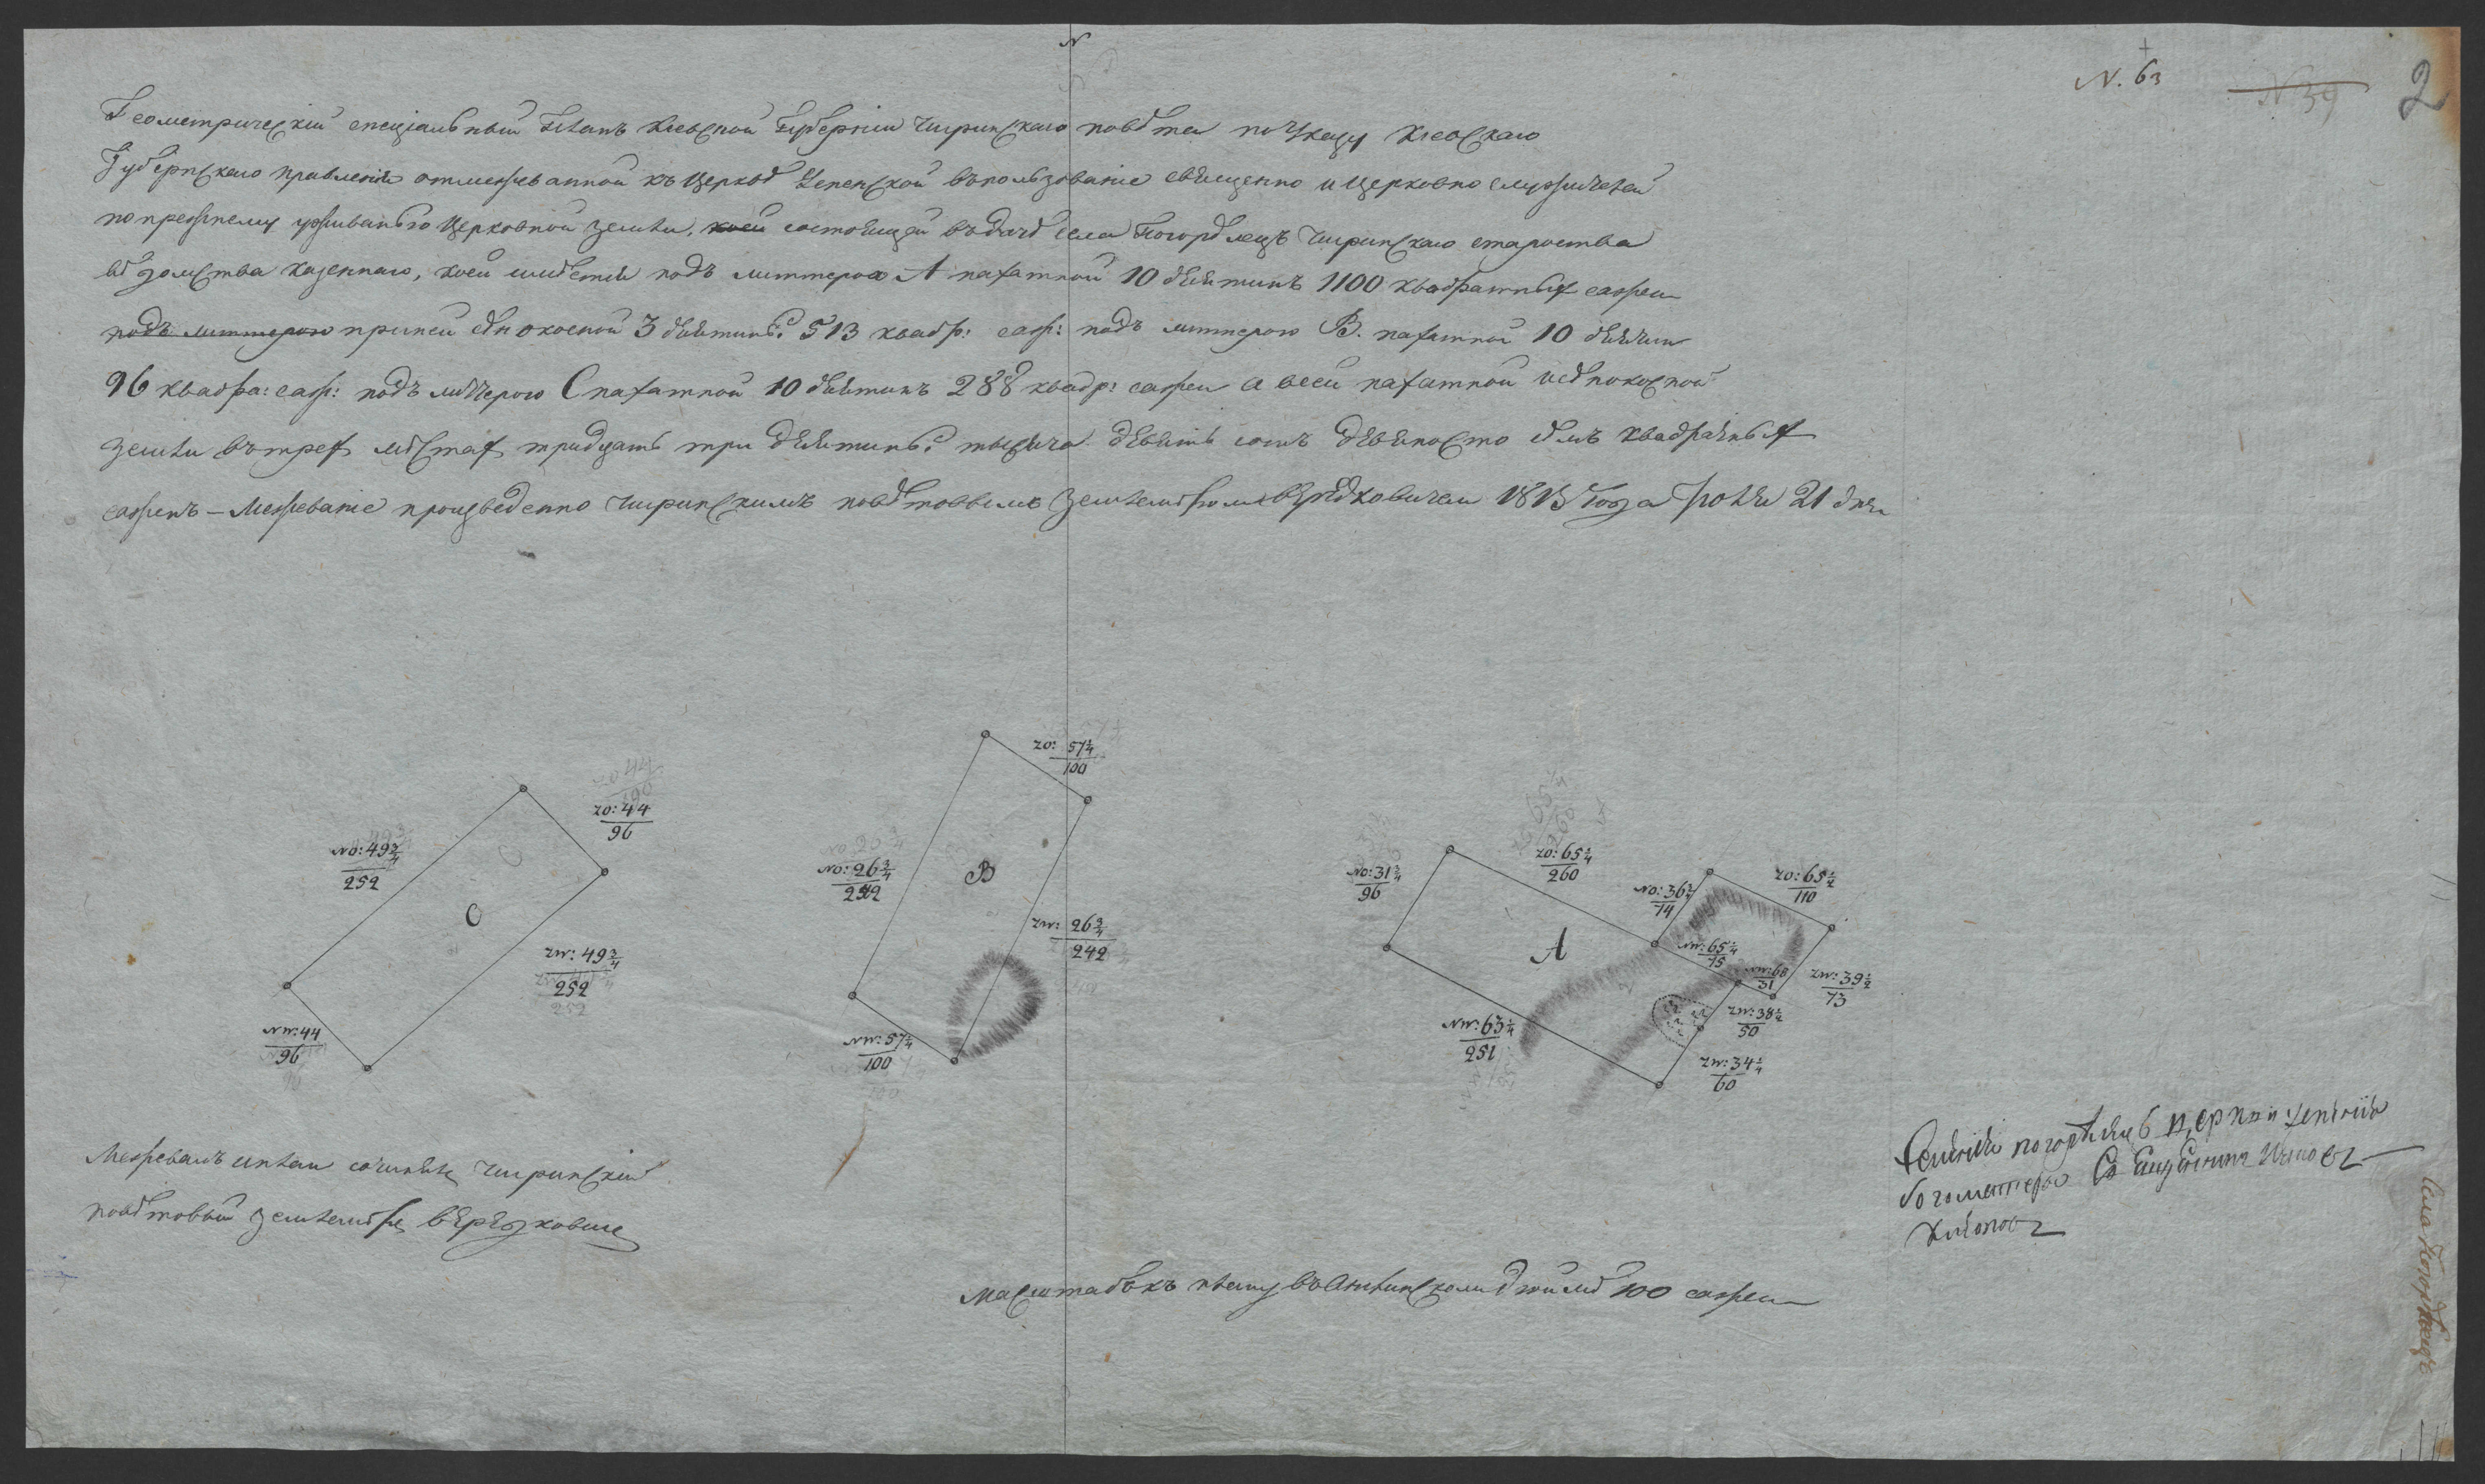 N
N. 63
N 39
2
Геометрическій спеціальный Планъ Кіевской Губерніи Чигринскаго повѣта по указу Кіевскаго
Губернскаго правленія отмежеванной къ Церквѣ Успенской въ пользованіе священно и церковно служителей
по прежнему уживанью Церковной земли, коей состоящей въ дачѣ села Погорѣлецъ Чигринскаго староства
вѣдомства казеннаго, коей имѣется подъ литерою А пахатной 10 десятинъ 1100 квадратныхъ сажен
подъ литтерою при ней сѣнокосной 3 десятины 513 квадр: саж: подъ литерою В. пахатной 10 десятин
96 квадра: саж: подъ литерою С пахатной 10 десятинъ 288 квадр: сажен а всей пахатной и сѣнокосной
земли въ трехъ мѣстахъ тридцать три десятины тысяча девять сотъ девяносто семъ квадратныхъ
сажень – Межеваніе произведенно Чигринскимъ повѣтовымъ землемѣромъ 1813 года Іюля 21 дня
zo: 57 1/4
100
zo: 44
96
no: 49 3/4
252
C
zw: 49 3/4
252
nw: 44
96
no: 26 3/4
242
B
zw: 26 3/4
242
nw: 57 1/4
100
no: 31 3/4
96
zo: 65 1/4
260
no: 36 1/2
74
zo: 65 1/2
110
A
nw: 65 1/4
75
nw: 68
31
zw: 39 1/2
73
zw: 38 1/2
50
nw: 63 1/4
251
zw: 34 1/4
60
Межевалъ и планъ сочинялъ Чигринскій
повѣтовый землемѣръ
Масштабъ къ плану въ Англинскомъ дюймѣ 100 сажен
богоматери
села Погорѣлецъ